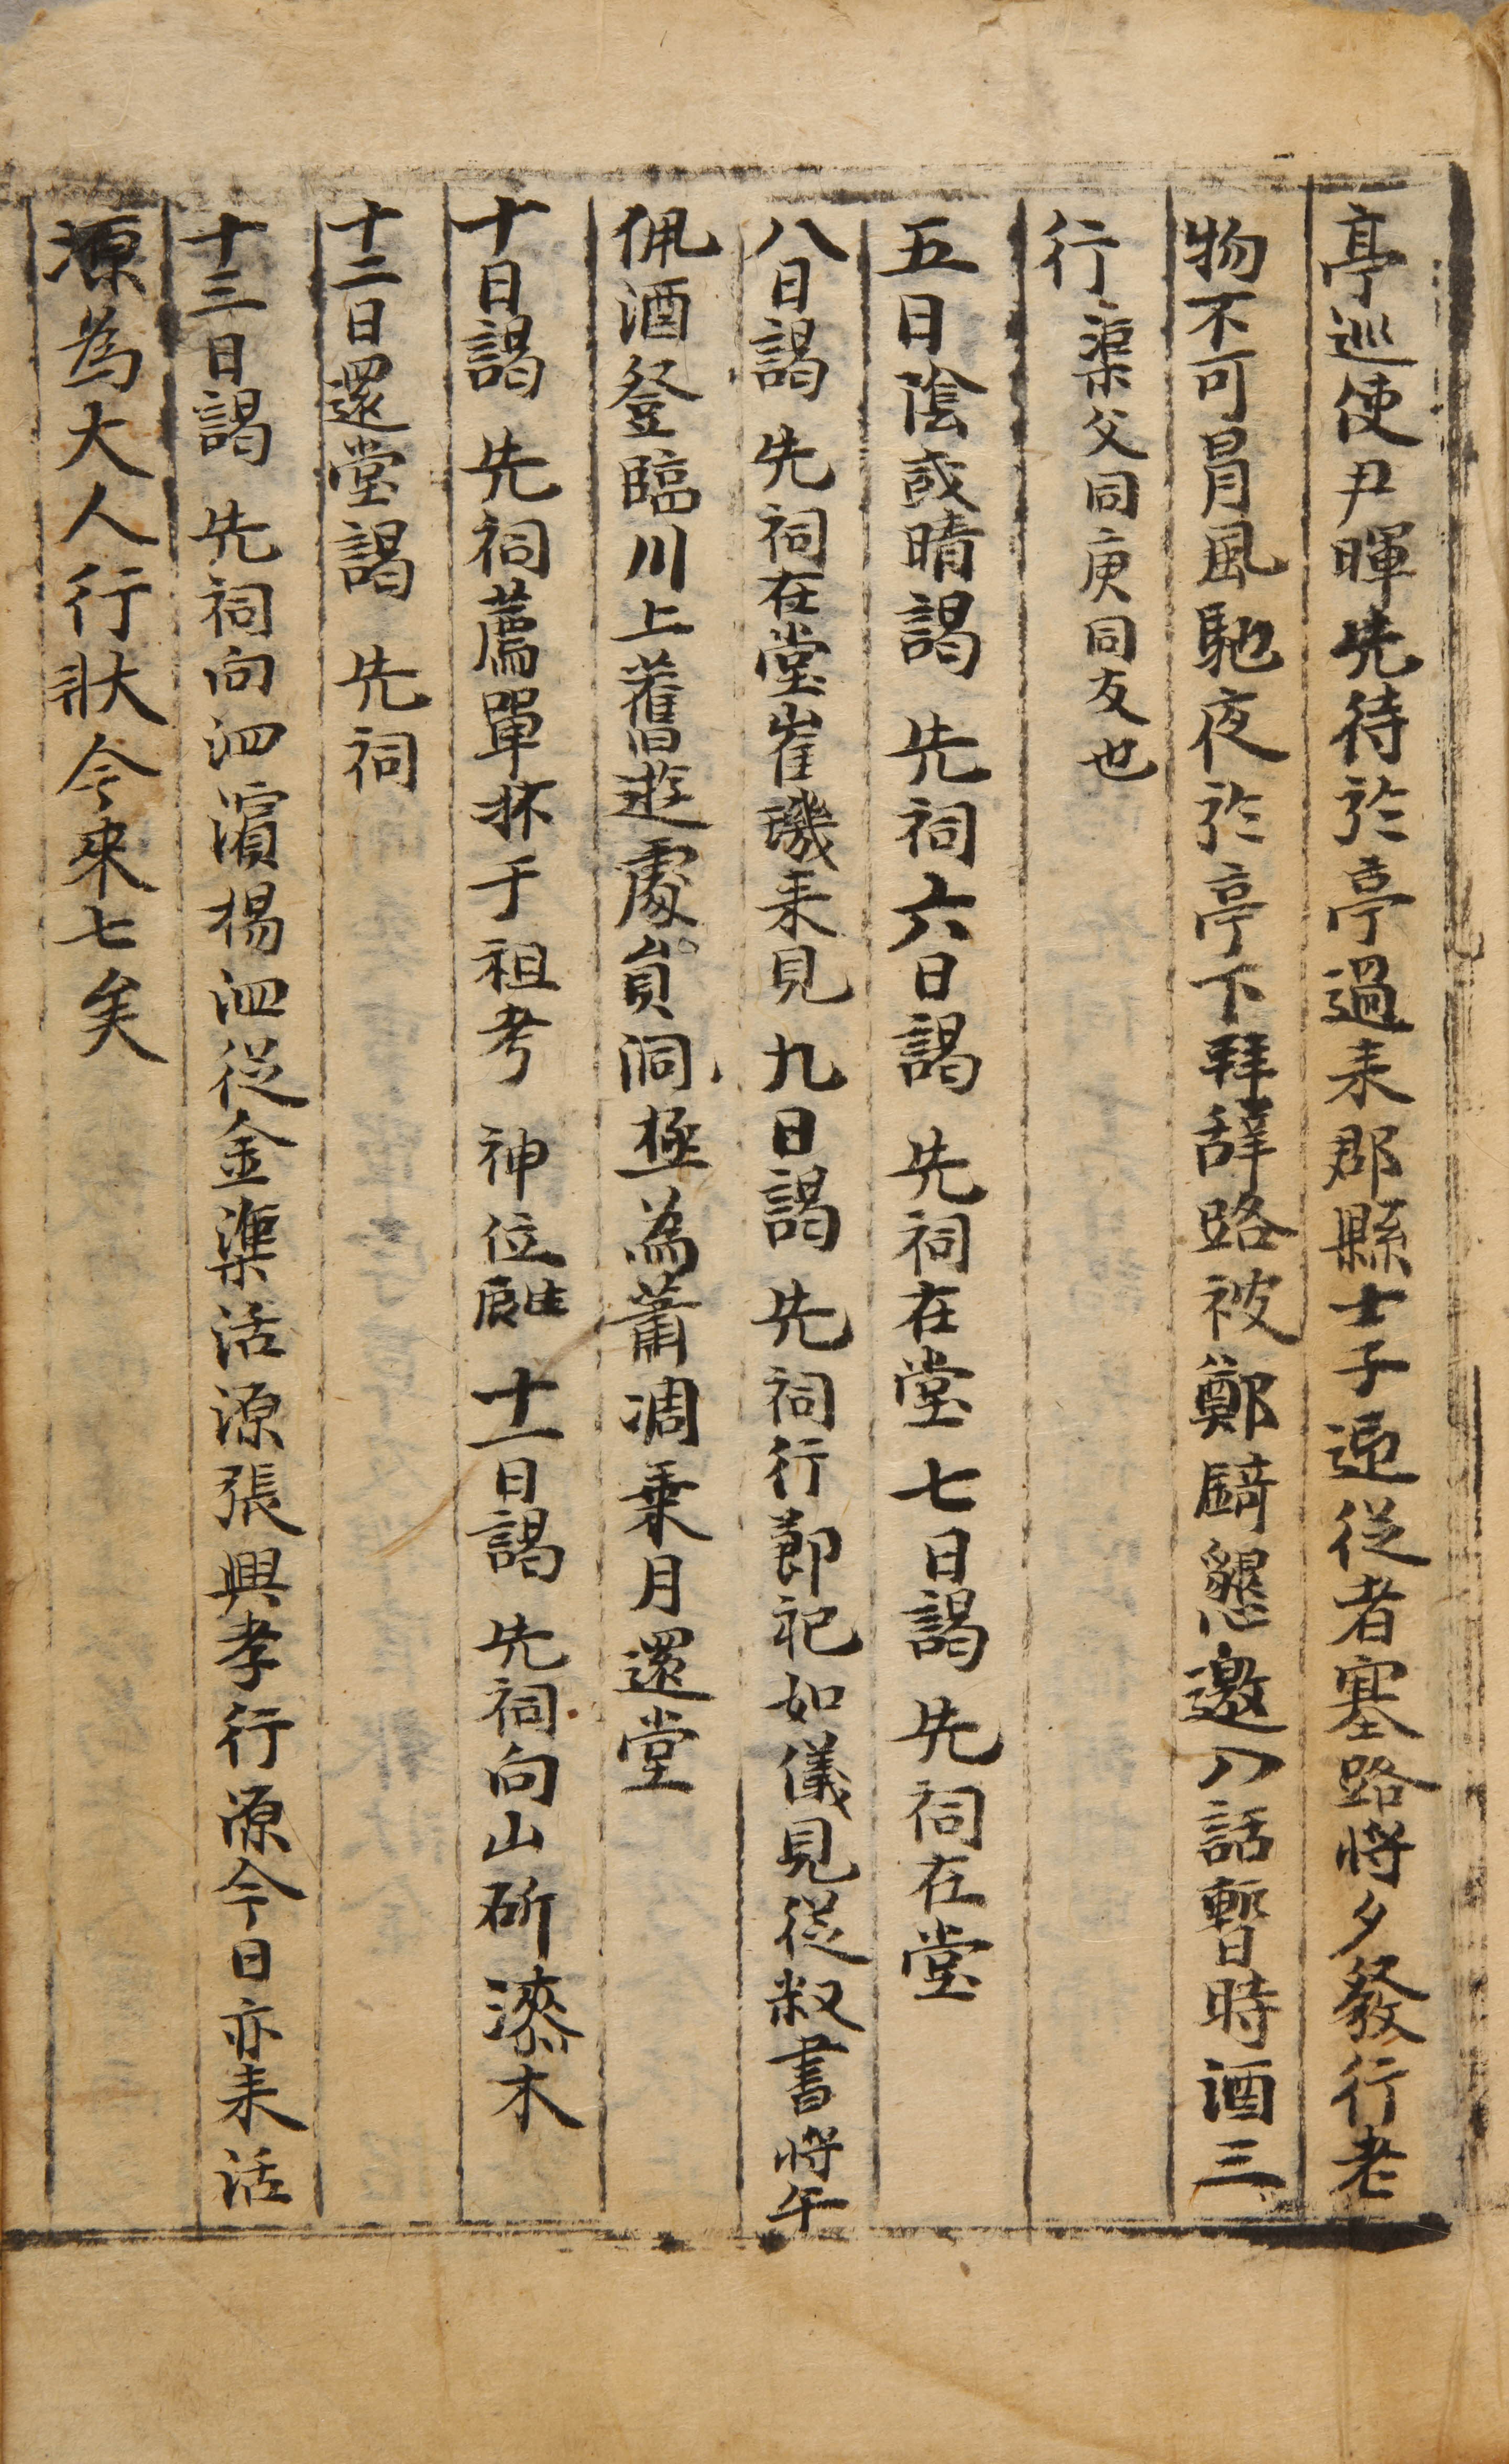 亭巡使尹暉先待於亭過来郡縣士子逆從者塞路將夕發行老
物不可冒風馳夜於亭下拜辞路被鄭錡懇邀入話暫時酒三
行渠父同庚同友也
五日陰或晴謁 先祠六日謁 先祠在堂七日謁 先祠在堂
八日謁 先祠在堂崔璣来見九日謁 先祠行節祀如儀見從叔書將午
佩酒登臨川上舊遊處負洞極為蕭凋乗月還堂
十日謁 先祠薦單杯于祖考 神位十一日謁 先祠向山斫漆木
十二日還堂謁 先祠
十三日謁 先祠向泗濱楊泗從金渫活源張興孝行源今日亦来活
源為大人行狀今來七矣